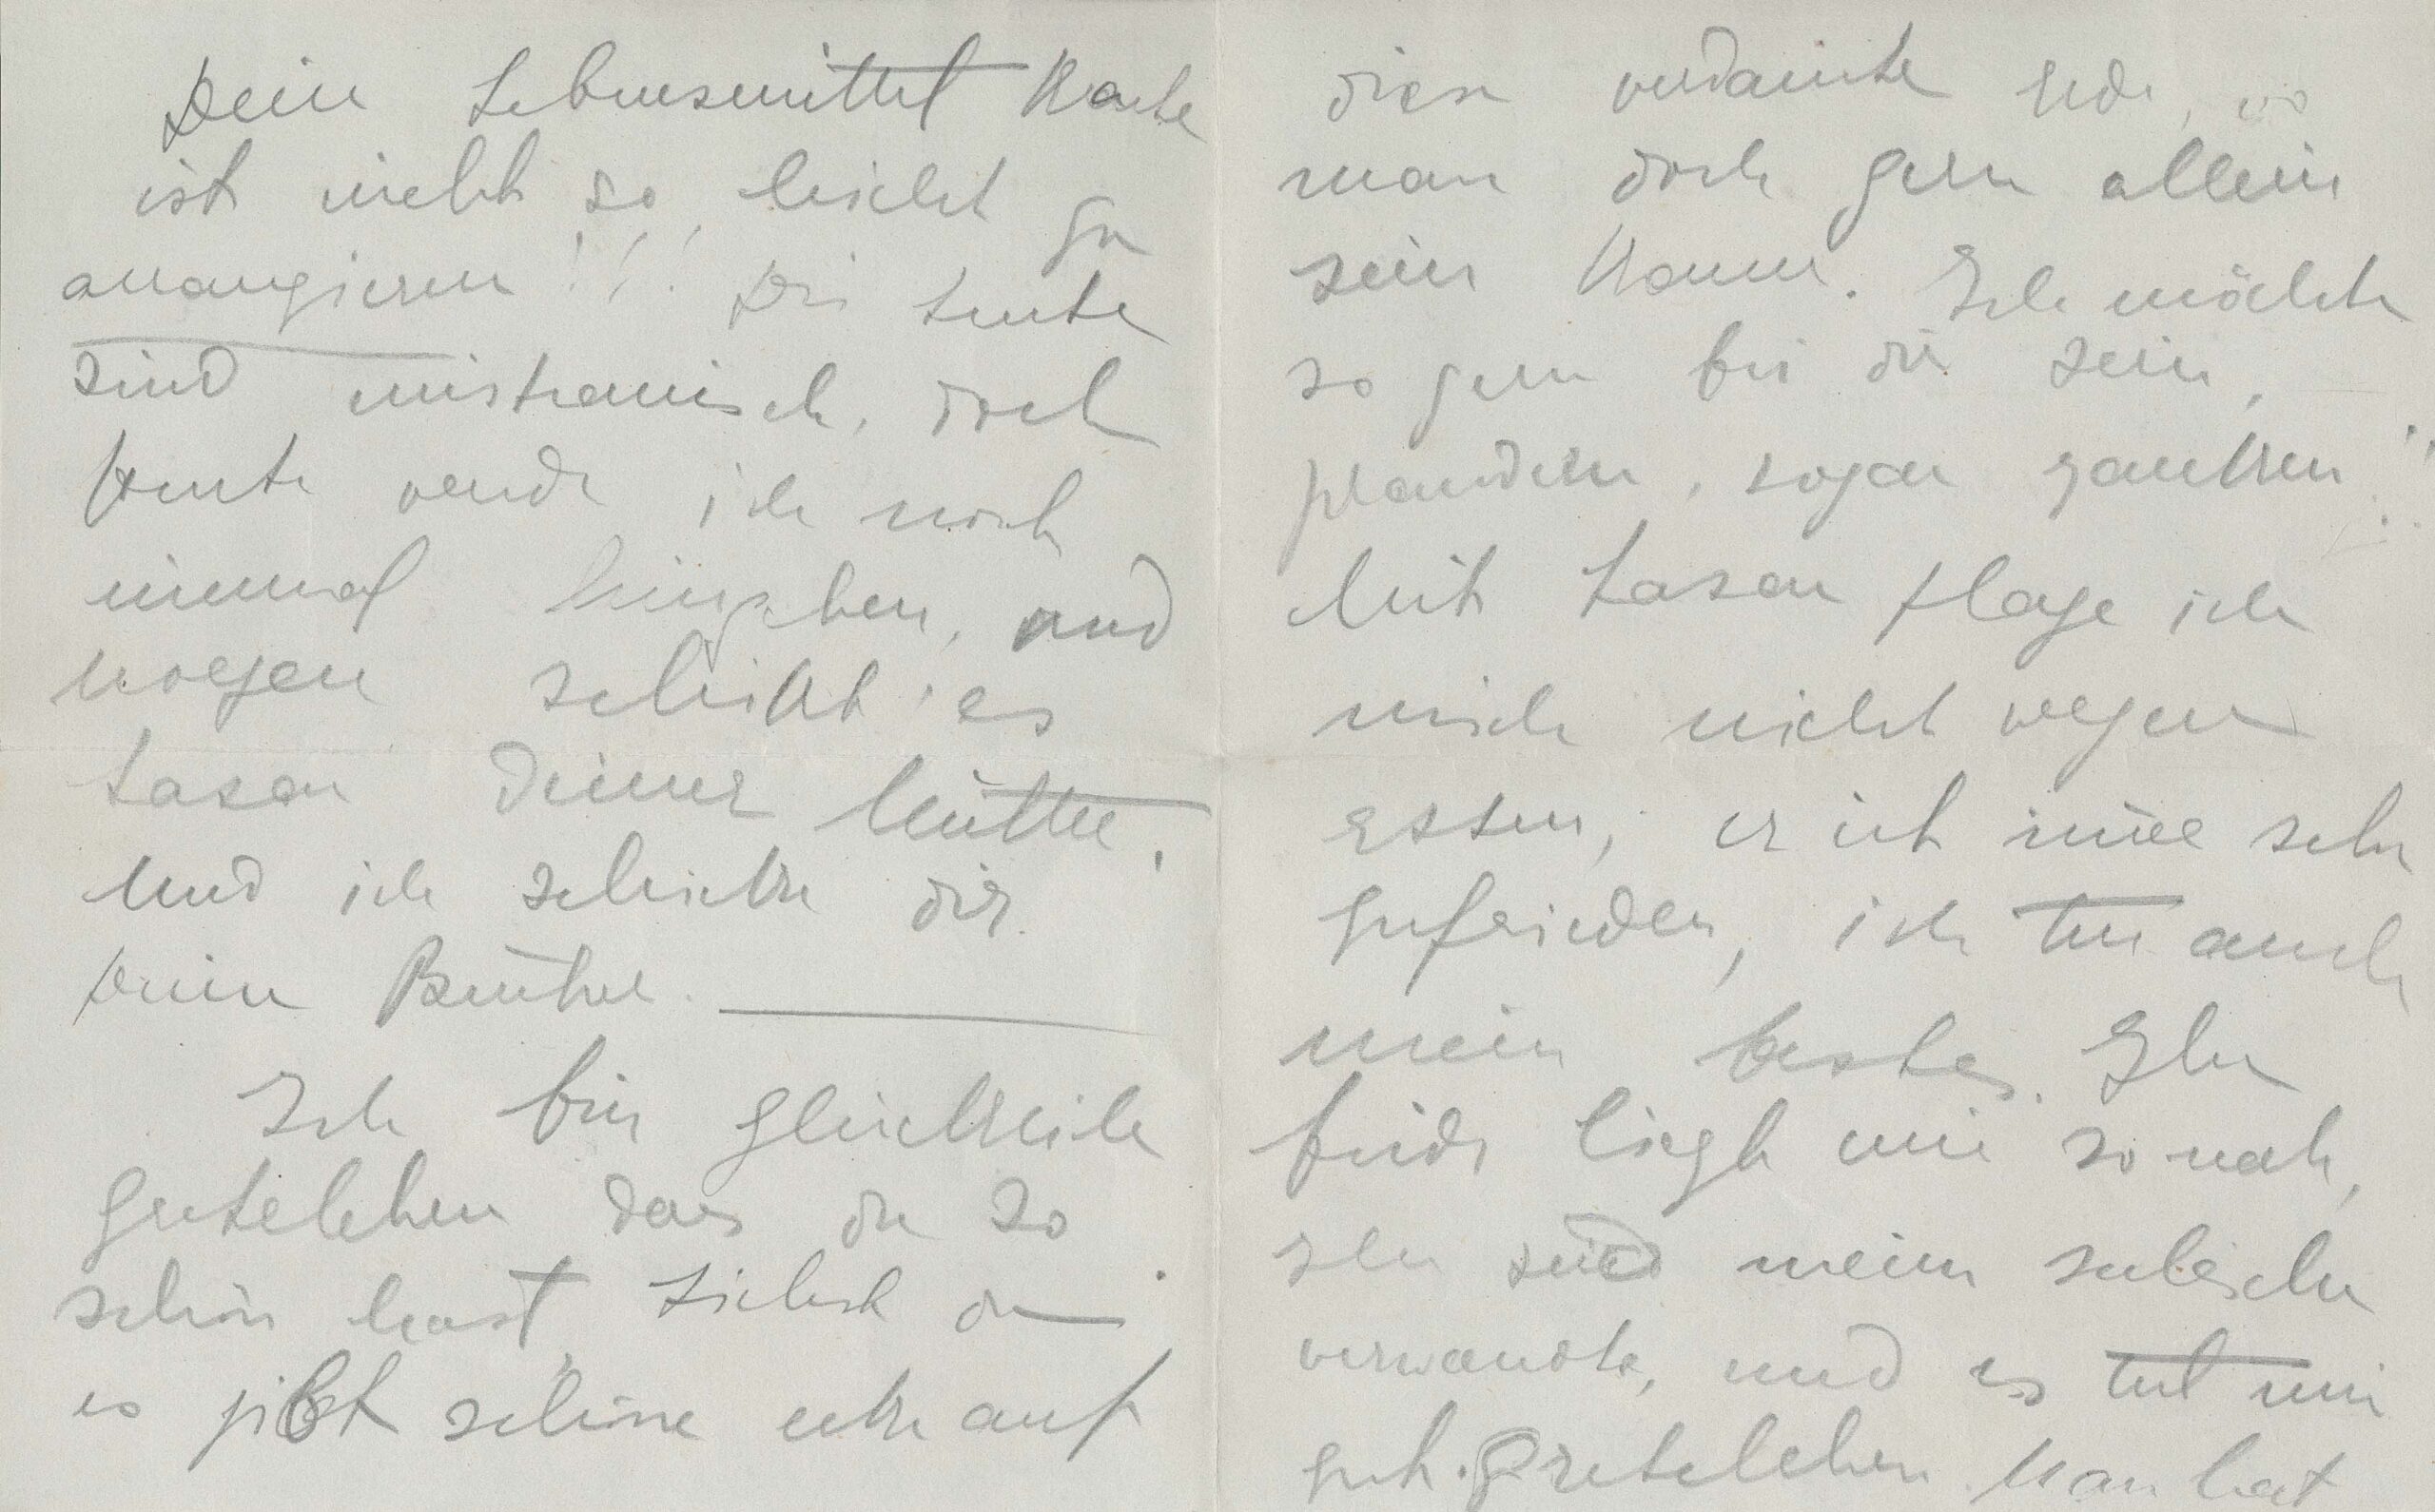 Dein Lebensmittel Karte
ist nicht so leicht zu
arrangieren!!! Die Leute
sind mistrauisch, doch
heute werde ich noch
einmal hingehen, und
morgen schickt es
Lasar deiner Mutter.
Und ich schicke dir
dein
Ich bin glücklich
Gretelchen das du so
schön hast, siehst du
es gibt schöne ecke auf
diese verdamte Erde, wo
man doch gern allein
sein kann. Ich möchte
so gern bei dir sein,
plaudern, sogar zanken!!
Mit Lasar plage ich
mich nicht wegen
essen, er ist sehr
zufrieden, ich tu auch
mein bestes. Ihr
beide liegt mir so nah,
ihr seid meine seelische
verwandte, und es tut mir
gut. Gretelchen. Man hat